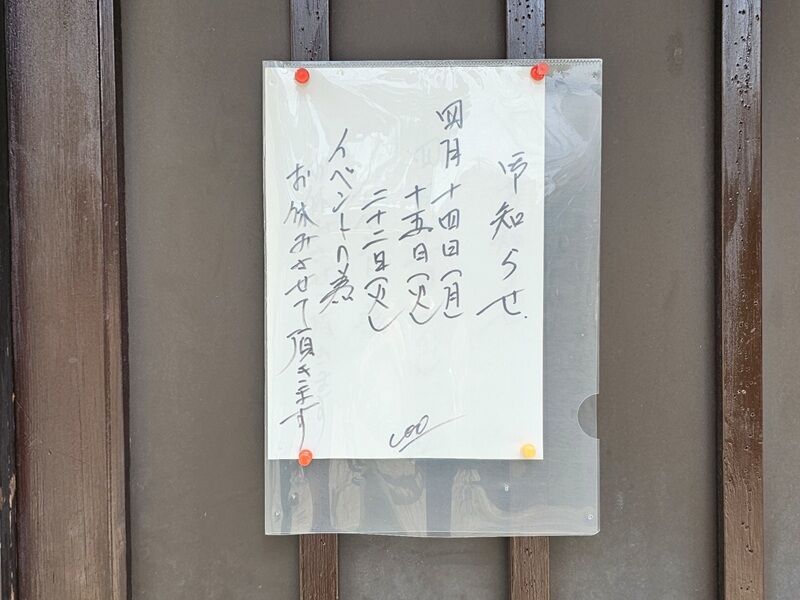 御知らせ
四月十四日(月)
十五日(火)
二十二日(火)
イベントの為
お休みさせて頂きます